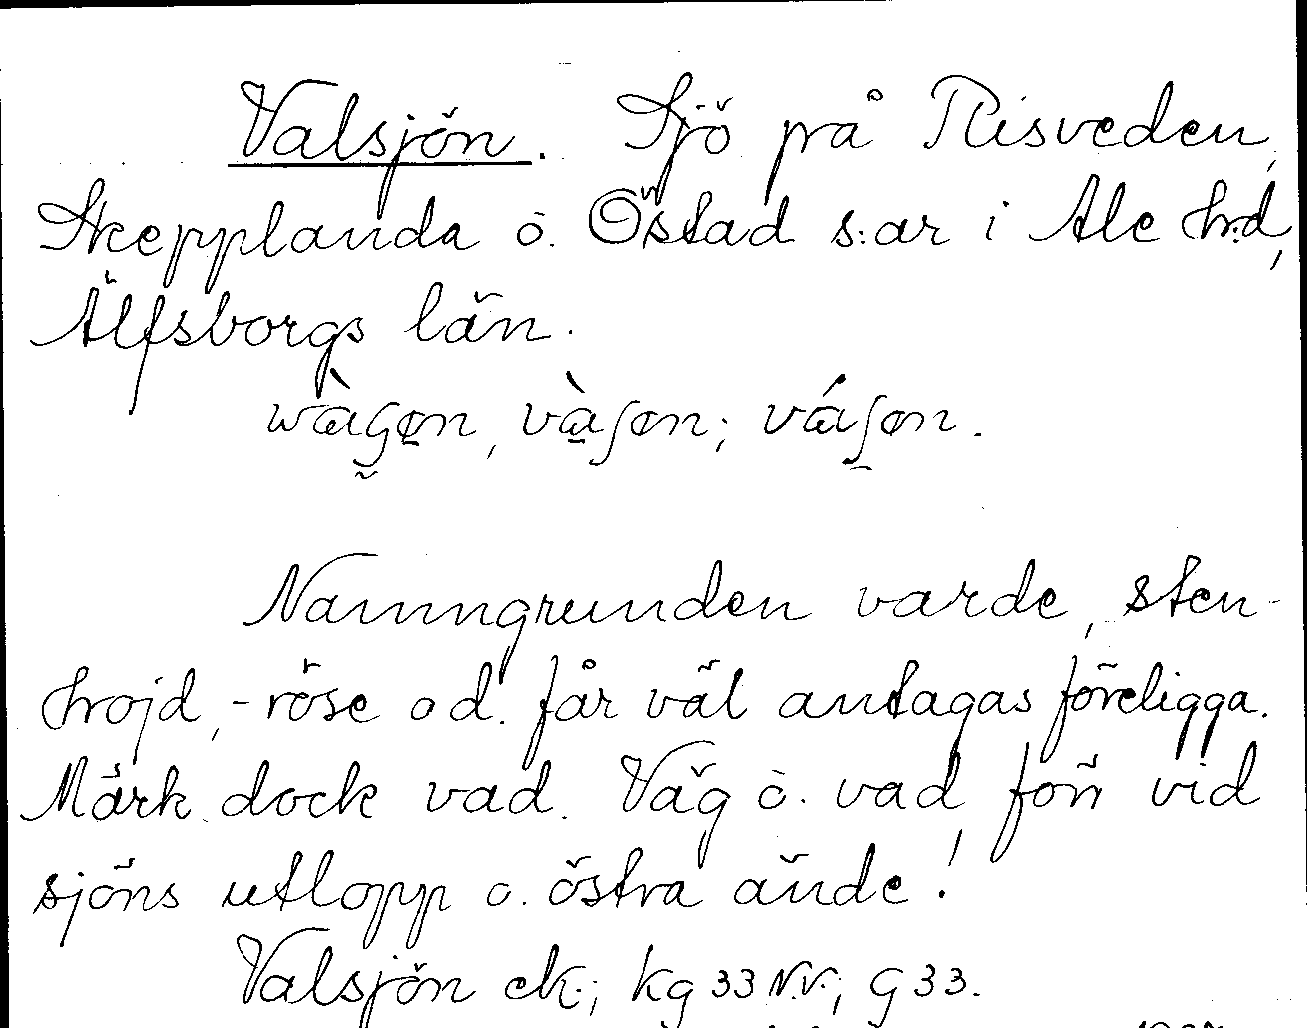 Valsjön. Sjö på Risveden,
Skepplanda o. Östad s:ar i Ale h:d,
Älfsborgs län.
Namngrunden varde, sten-
hojd, -röse o d. får väl antagas föreligga.
Märk dock vad. Väg o. vad förr vid
sjöns utlopp o. östra ände!
Valsjön ek.; kg 33 N.V.; G 33.